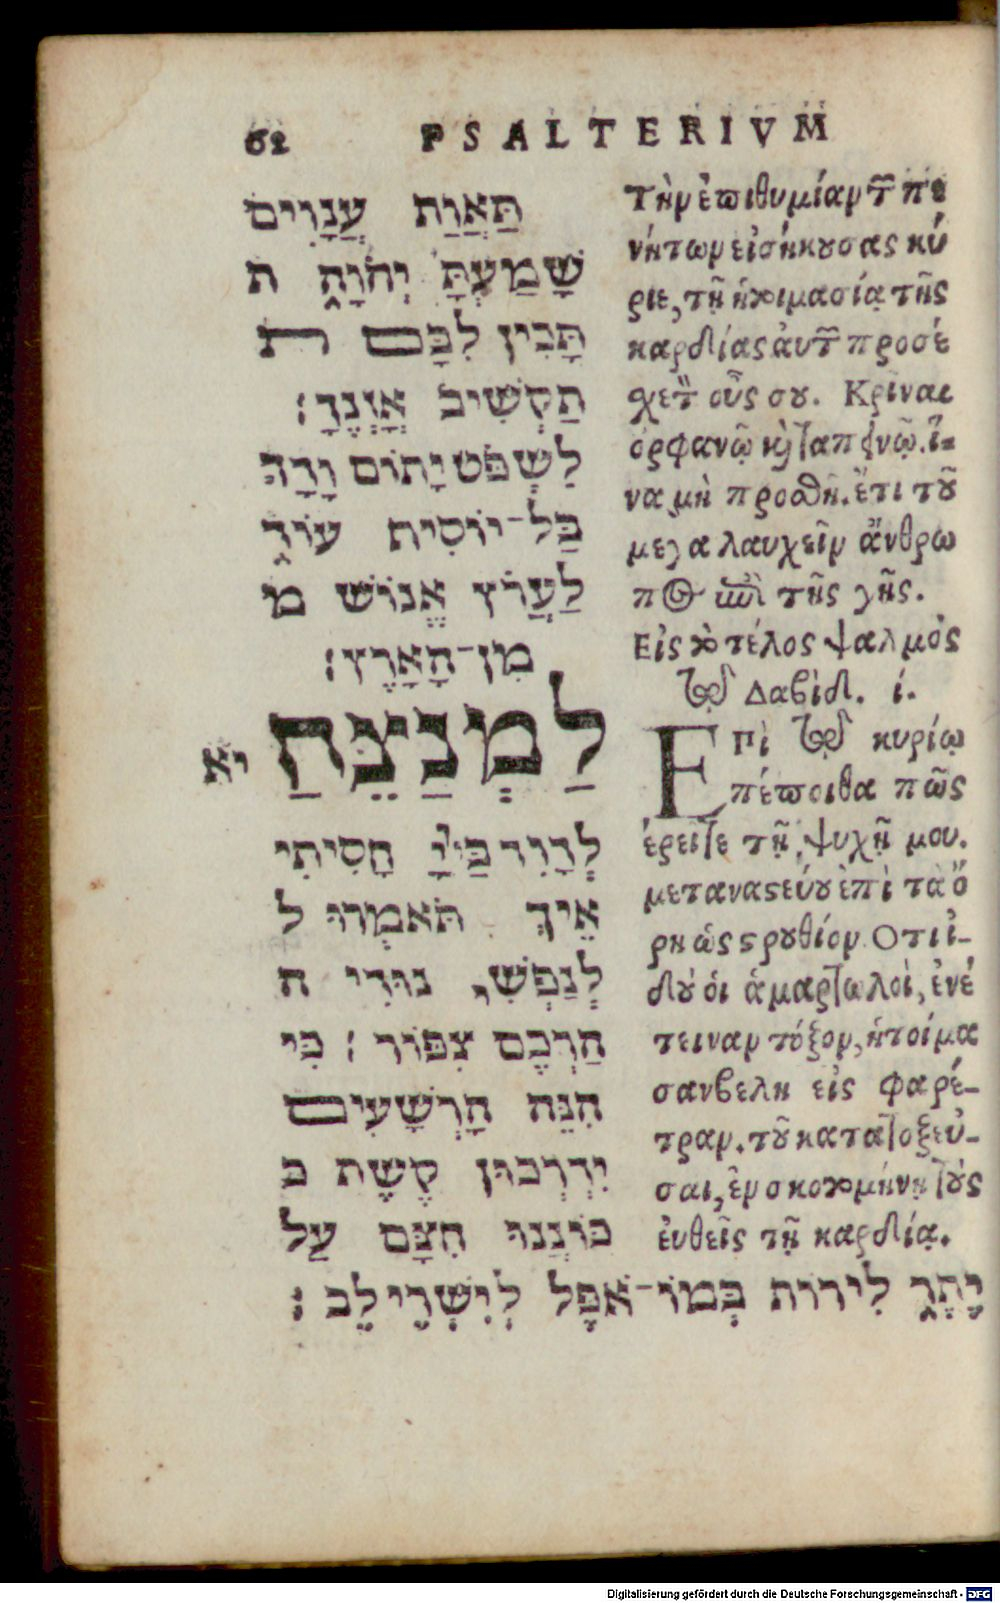 62 PSALTERIVM
תַּאֲוַת עֲנָוִים
שָׁמַעְתָּ יְהֹוָה ת
תָּבִין לִבָּם ת
תַקְשִׁיב אָזְנֶךָ׃
לִשְׁפֹּט יָתוֹם וָדָךְ
בַּל־יוֹסִית עוֹד
לַעֲרֹץ אֱנוֹשׁ מ
מִן־הָאָרֶץ׃
יא לַמְנַצֵּחַ
לְדָוִד בַּיְיָ חָסִיתִי
אֵיךְ תֹּאמְרוּ ל
לְנַפְשִׁי, נוּדִי ה
הַרְכֶם צִפּוֹר׃ כִּי
הִנֵּה הָרְשָׁעִים
יִדְרְכוּן קֶשֶׁת כ
כּוֹנְנוּ חִצָּם עַל
יֶתֶר לִירוֹת בְּמוֹ־אֹפֶל לְיִשְׁרֵי לֵב׃
Τὴν ἐπιθυμίαν τῶν πε
νήτων εἰσήκουσας κύ
ριε, τῇ ἑτοιμασίᾳ τῆς
καρδίας ἀυτῶν προσέ
χε τὸ οὖς σου. Κρῖναι
ὀρφανῷ καὶ ταπεινῷ. ἵ-
να μὴ προσθῇ. ἔτι τοῦ
μεγαλαυχεῖν ἄνθρω
πος ἐπὶ τῆς γῆς.
Εἰς τὸ τέλος ψαλμὸς
τῷ Δαβὶδ. ί.
ΕΠὶ τῷ κυρίῳ
πέποιθα πῶς
ἐρεῖτε τῇ ψυχῇ μου.
μεταναστεύου ἐπὶ τὰ ὄ
ρη ὡς στρουθίον. Οτι ἰ-
δοὺ ὁι ἁμαρτωλοὶ, ἐνέ
τειναν τόξον, ἡτοίμα
σαν βελη εἰς φαρέ-
τραν. τοῦ κατατοξεύ-
σαι, ἐν σκοτομήνῃ τοὺς
ἐυθεῖς τῇ καρδίᾳ.
Digitalisierung gefördert durch die Deutsche Forschungsgemeinschaft - DFG